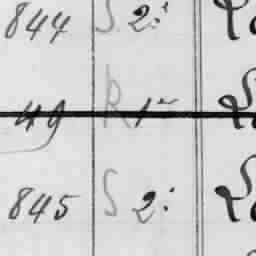 844 S 2:
49 R 1
845 S 2: